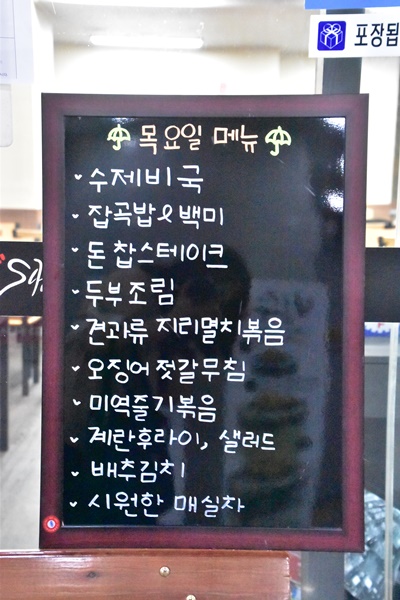 포장됩
목요일 메뉴
수제비국
잡곡밥&백미
돈찹스테이크
두부조림
견과류 지리멸치볶음
오징어젓갈무침
미역줄기볶음
계란후라이, 샐러드
배추김치
시원한 매실차